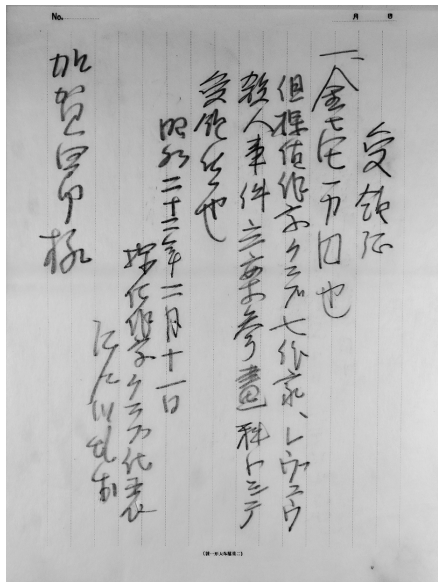 No. 月 日
受領証
一、金 万円也
但探偵作家クラブ七作家、レヴュウ
殺人事件立案参畫料トシテ
受領候也
昭和二十三年二月十一日
探偵作家クラブ代表
江戸川乱歩
加賀四郎様